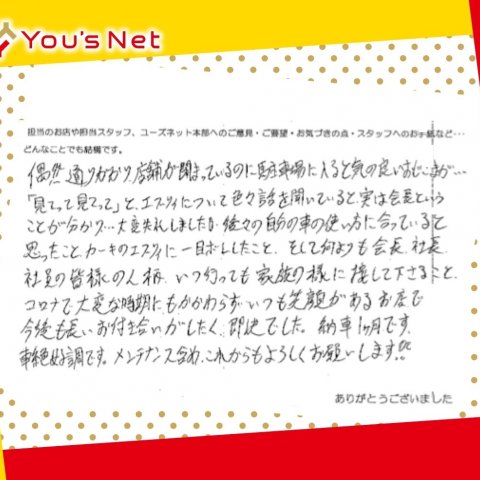 You's Net
担当のお店や担当スタッフ、ユーズネット本部へのご意見・ご要望・お気づきの点・スタッフへのお手紙など…
どんなことでも結構です。
偶然通りかかり店舗が閉まっているのに駐車場に入ると気の良いおじさまが…
「見てって見てって」と、エスティについて色々話を聞いていると実は会長という
ことが分かり…大変失礼しました 後々の自分の車の使い方に合っていると
思ったこと、カーキのエスティに一目ボレしたこと、そして何よりも会長、社長、
社員の皆様の人柄、いつ行っても家族の様に接して下さること、
コロナで大変な時期にもかかわらず、いつも笑顔があるお店で
今後も長いお付き合いがしたく、即決でした。納車1ヶ月です。
車絶好調です。メンテナンス含め、これからもよろしくお願いします!!
ありがとうございました